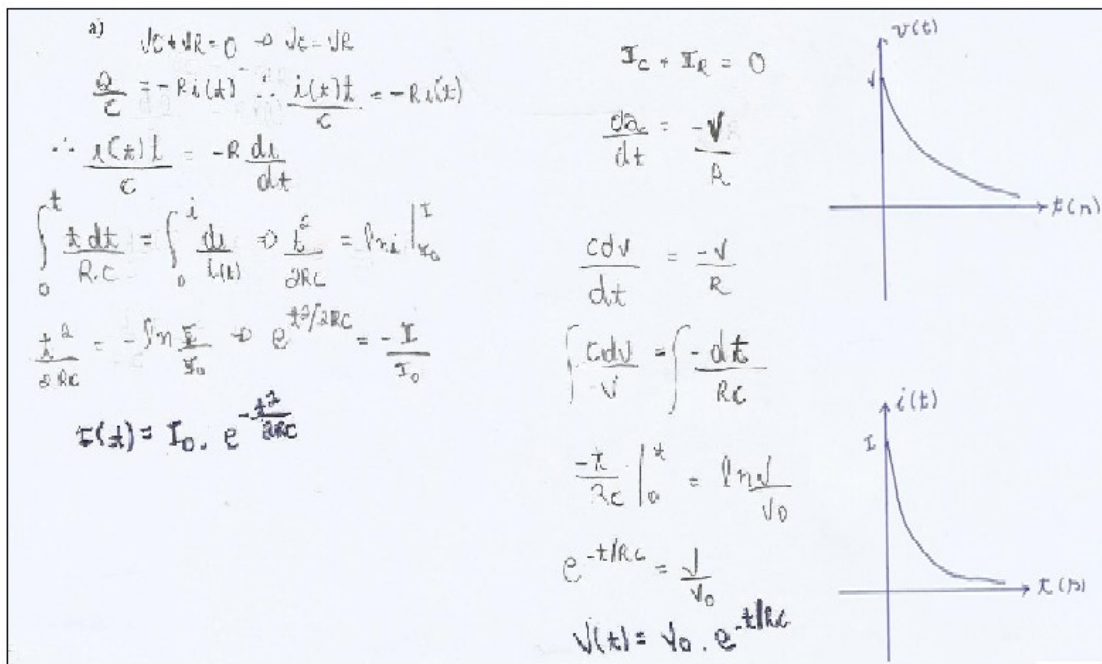 a)
VC + VR = 0 ⇒ VC = VR
Q/C = -R i(t) ∴ i(t)t/C = -R i(t)
∴ i(t)t/C = -R di/dt
∫₀ᵗ t dt/R.C = ∫₀ⁱ di/i(t) ⇒ t²/2RC = ln i |_I₀^I
t²/2RC = -ln I/I₀ ⇒ e^(t²/2RC) = -I/I₀
I(t) = I₀ . e^(-t²/2RC)
I_C + I_R = 0
dQ/dt = -V/R
C dv/dt = -V/R
∫ C dv/V = ∫ -dt/RC
-t/RC |₀ᵗ = ln V/V₀
e^(-t/RC) = V/V₀
V(t) = V₀ . e^(-t/RC)
v(t)
V
t(s)
i(t)
I
t(s)